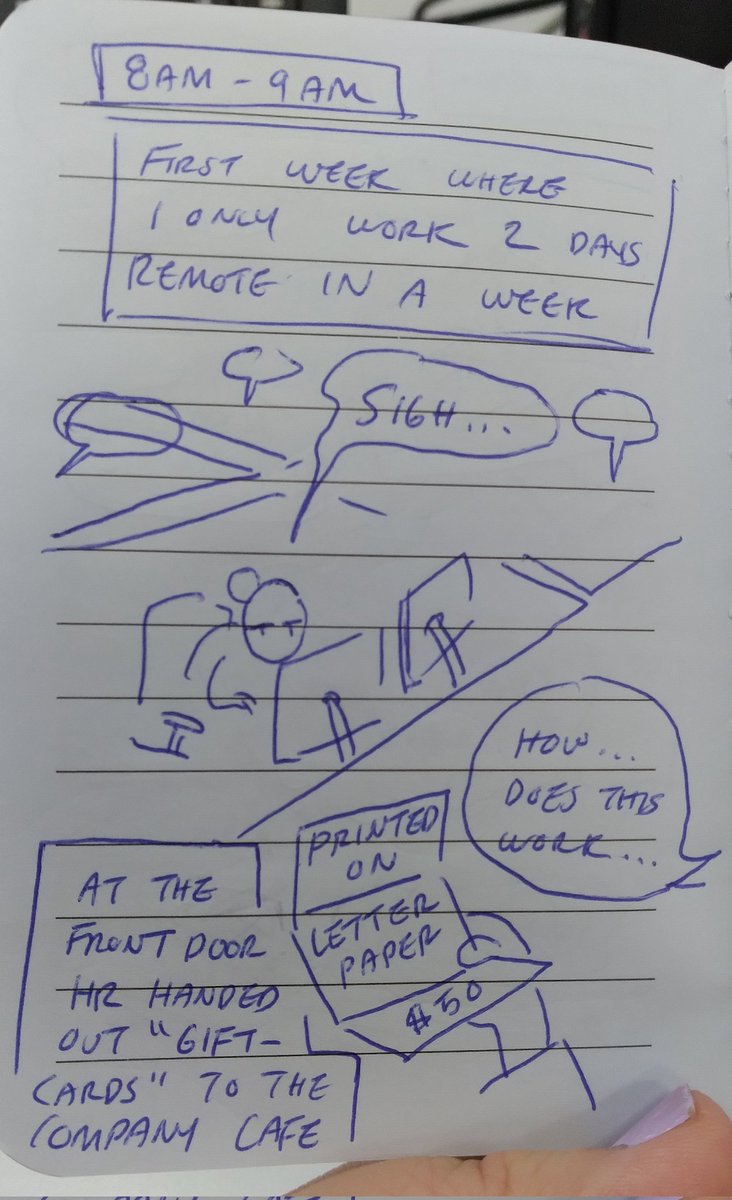 8AM - 9AM
FIRST WEEK WHERE
I ONLY WORK 2 DAYS
REMOTE IN A WEEK
SIGH...
HOW...
DOES THIS
WORK...
PRINTED
ON
LETTER
PAPER
$50
AT THE
FRONT DOOR
HR HANDED
OUT "GIFT-
CARDS" TO THE
COMPANY CAFE